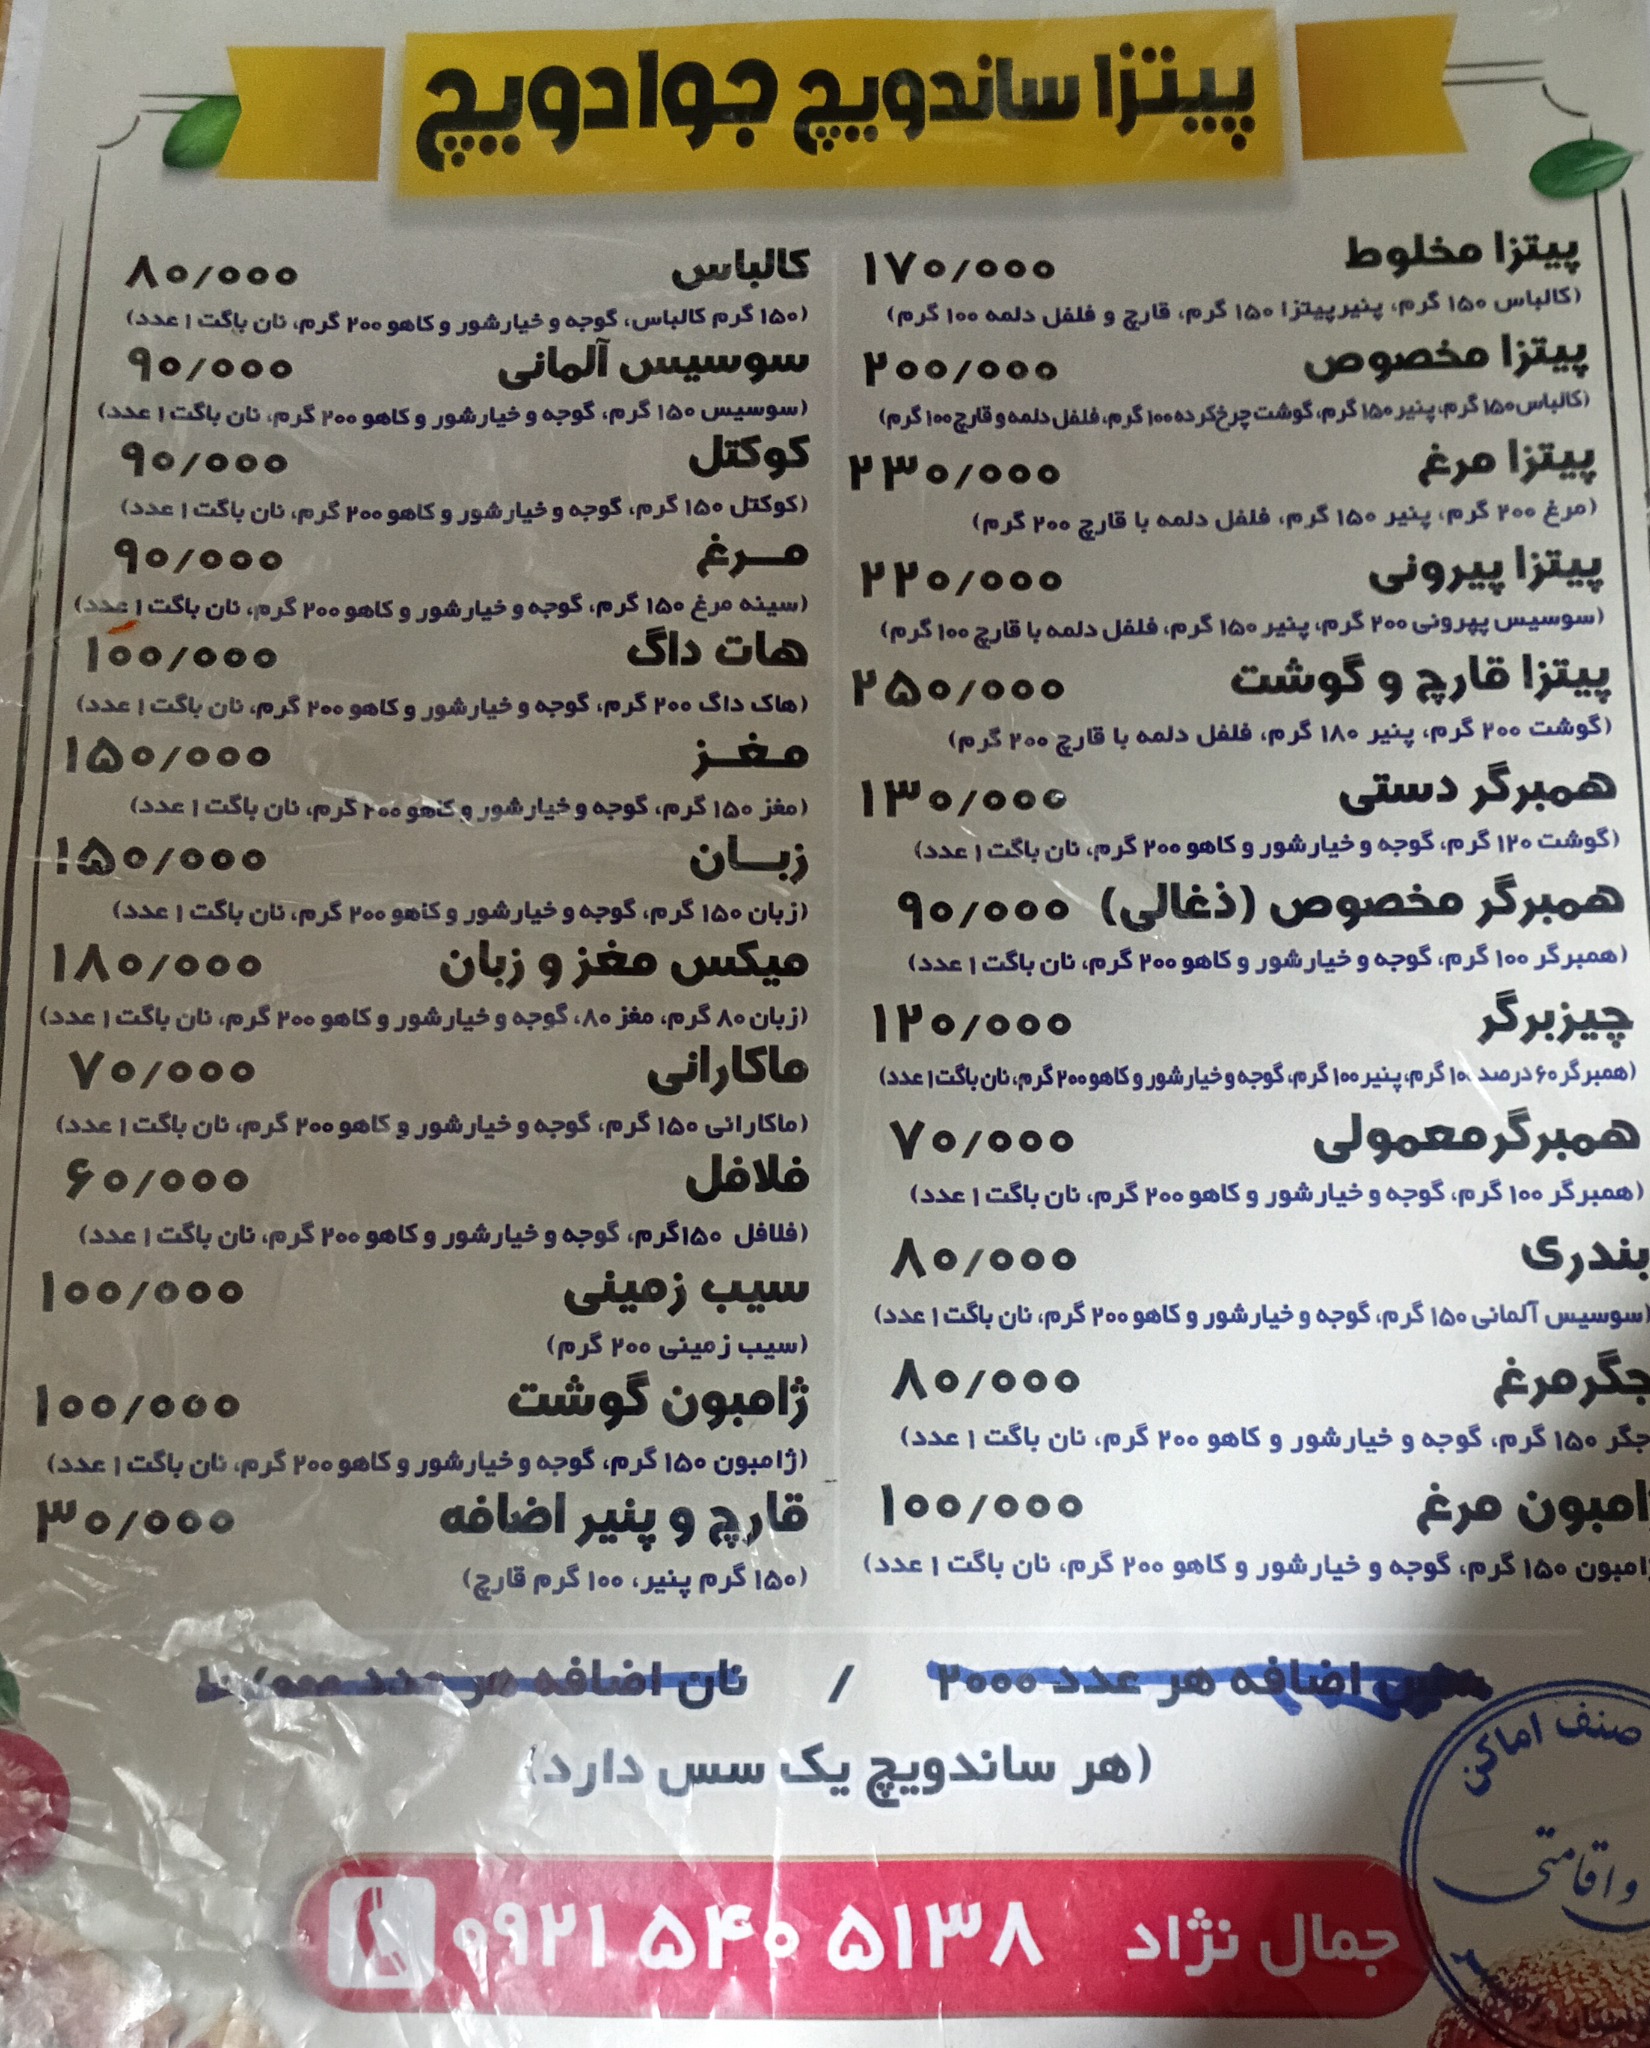 پیتزا ساندویچ جوادویچ
پیتزا مخلوط ۱۷۰/۰۰۰
(کالباس ۱۵۰ گرم، پنیرپیتزا ۱۵۰ گرم، قارچ و فلفل دلمه ۱۰۰ گرم)
پیتزا مخصوص ۲۰۰/۰۰۰
(کالباس۱۵۰ گرم، پنیر ۱۵۰ گرم، گوشت چرخ‌کرده ۱۰۰ گرم، فلفل دلمه و قارچ ۱۰۰ گرم)
پیتزا مرغ ۲۳۰/۰۰۰
(مرغ ۲۰۰ گرم، پنیر ۱۵۰ گرم، فلفل دلمه با قارچ ۲۰۰ گرم)
پیتزا پیرونی ۲۲۰/۰۰۰
(سوسیس پپرونی ۲۰۰ گرم، پنیر ۱۵۰ گرم، فلفل دلمه با قارچ ۱۰۰ گرم)
پیتزا قارچ و گوشت ۲۵۰/۰۰۰
(گوشت ۲۰۰ گرم، پنیر ۱۸۰ گرم، فلفل دلمه با قارچ ۲۰۰ گرم)
همبرگر دستی ۱۳۰/۰۰۰
(گوشت ۱۲۰ گرم، گوجه و خیارشور و کاهو ۲۰۰ گرم، نان باگت ۱ عدد)
همبرگر مخصوص (ذغالی) ۹۰/۰۰۰
(همبرگر ۱۰۰ گرم، گوجه و خیارشور و کاهو ۲۰۰ گرم، نان باگت ۱ عدد)
چیزبرگر ۱۲۰/۰۰۰
(همبرگر ۶۰ درصد ۱۰۰ گرم، پنیر ۱۰۰ گرم، گوجه و خیارشور و کاهو ۲۰۰ گرم، نان باگت ۱ عدد)
همبرگر معمولی ۷۰/۰۰۰
(همبرگر ۱۰۰ گرم، گوجه و خیارشور و کاهو ۲۰۰ گرم، نان باگت ۱ عدد)
بندری ۸۰/۰۰۰
(سوسیس آلمانی ۱۵۰ گرم، گوجه و خیارشور و کاهو ۲۰۰ گرم، نان باگت ۱ عدد)
جگرمرغ ۸۰/۰۰۰
جگر ۱۵۰ گرم، گوجه و خیارشور و کاهو ۲۰۰ گرم، نان باگت ۱ عدد)
ژامبون مرغ ۱۰۰/۰۰۰
ژامبون ۱۵۰ گرم، گوجه و خیارشور و کاهو ۲۰۰ گرم، نان باگت ۱ عدد)
کالباس ۸۰/۰۰۰
(۱۵۰ گرم کالباس، گوجه و خیارشور و کاهو ۲۰۰ گرم، نان باگت ۱ عدد)
سوسیس آلمانی ۹۰/۰۰۰
(سوسیس ۱۵۰ گرم، گوجه و خیارشور و کاهو ۲۰۰ گرم، نان باگت ۱ عدد)
کوکتل ۹۰/۰۰۰
(کوکتل ۱۵۰ گرم، گوجه و خیارشور و کاهو ۲۰۰ گرم، نان باگت ۱ عدد)
مرغ ۹۰/۰۰۰
(سینه مرغ ۱۵۰ گرم، گوجه و خیارشور و کاهو ۲۰۰ گرم، نان باگت ۱ عدد)
هات داگ ۱۰۰/۰۰۰
(هاک داگ ۲۰۰ گرم، گوجه و خیارشور و کاهو ۲۰۰ گرم، نان باگت ۱ عدد)
مغز ۱۵۰/۰۰۰
(مغز ۱۵۰ گرم، گوجه و خیارشور و کاهو ۲۰۰ گرم، نان باگت ۱ عدد)
زبان ۱۵۰/۰۰۰
(زبان ۱۵۰ گرم، گوجه و خیارشور و کاهو ۲۰۰ گرم، نان باگت ۱ عدد)
میکس مغز و زبان ۱۸۰/۰۰۰
(زبان ۸۰ گرم، مغز ۸۰، گوجه و خیارشور و کاهو ۲۰۰ گرم، نان باگت ۱ عدد)
ماکارانی ۷۰/۰۰۰
(ماکارانی ۱۵۰ گرم، گوجه و خیارشور و کاهو ۲۰۰ گرم، نان باگت ۱ عدد)
فلافل ۶۰/۰۰۰
(فلافل ۱۵۰گرم، گوجه و خیارشور و کاهو ۲۰۰ گرم، نان باگت ۱ عدد)
سیب زمینی ۱۰۰/۰۰۰
(سیب زمینی ۲۰۰ گرم)
ژامبون گوشت ۱۰۰/۰۰۰
(ژامبون ۱۵۰ گرم، گوجه و خیارشور و کاهو ۲۰۰ گرم، نان باگت ۱ عدد)
قارچ و پنیر اضافه ۳۰/۰۰۰
(۱۵۰ گرم پنیر، ۱۰۰ گرم قارچ)
اضافه هر عدد ۲۰۰۰ / نان اضافه هر عدد
(هر ساندویچ یک سس دارد)
جمال نژاد ۰۹۲۱ ۵۴۰ ۵۱۳۸
صنف اماکن
و اقامتی